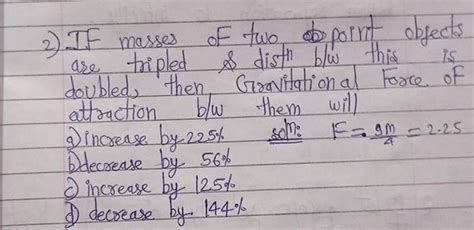 2) IF masses of two point objects
are tripled & distn b/w this is
doubled, then Gravitational Force of
attraction b/w them will
a) increase by 225%
b) decrease by 56%
c) increase by 125%
d) decrease by 144%
soln: F = 9m/4 = 2.25